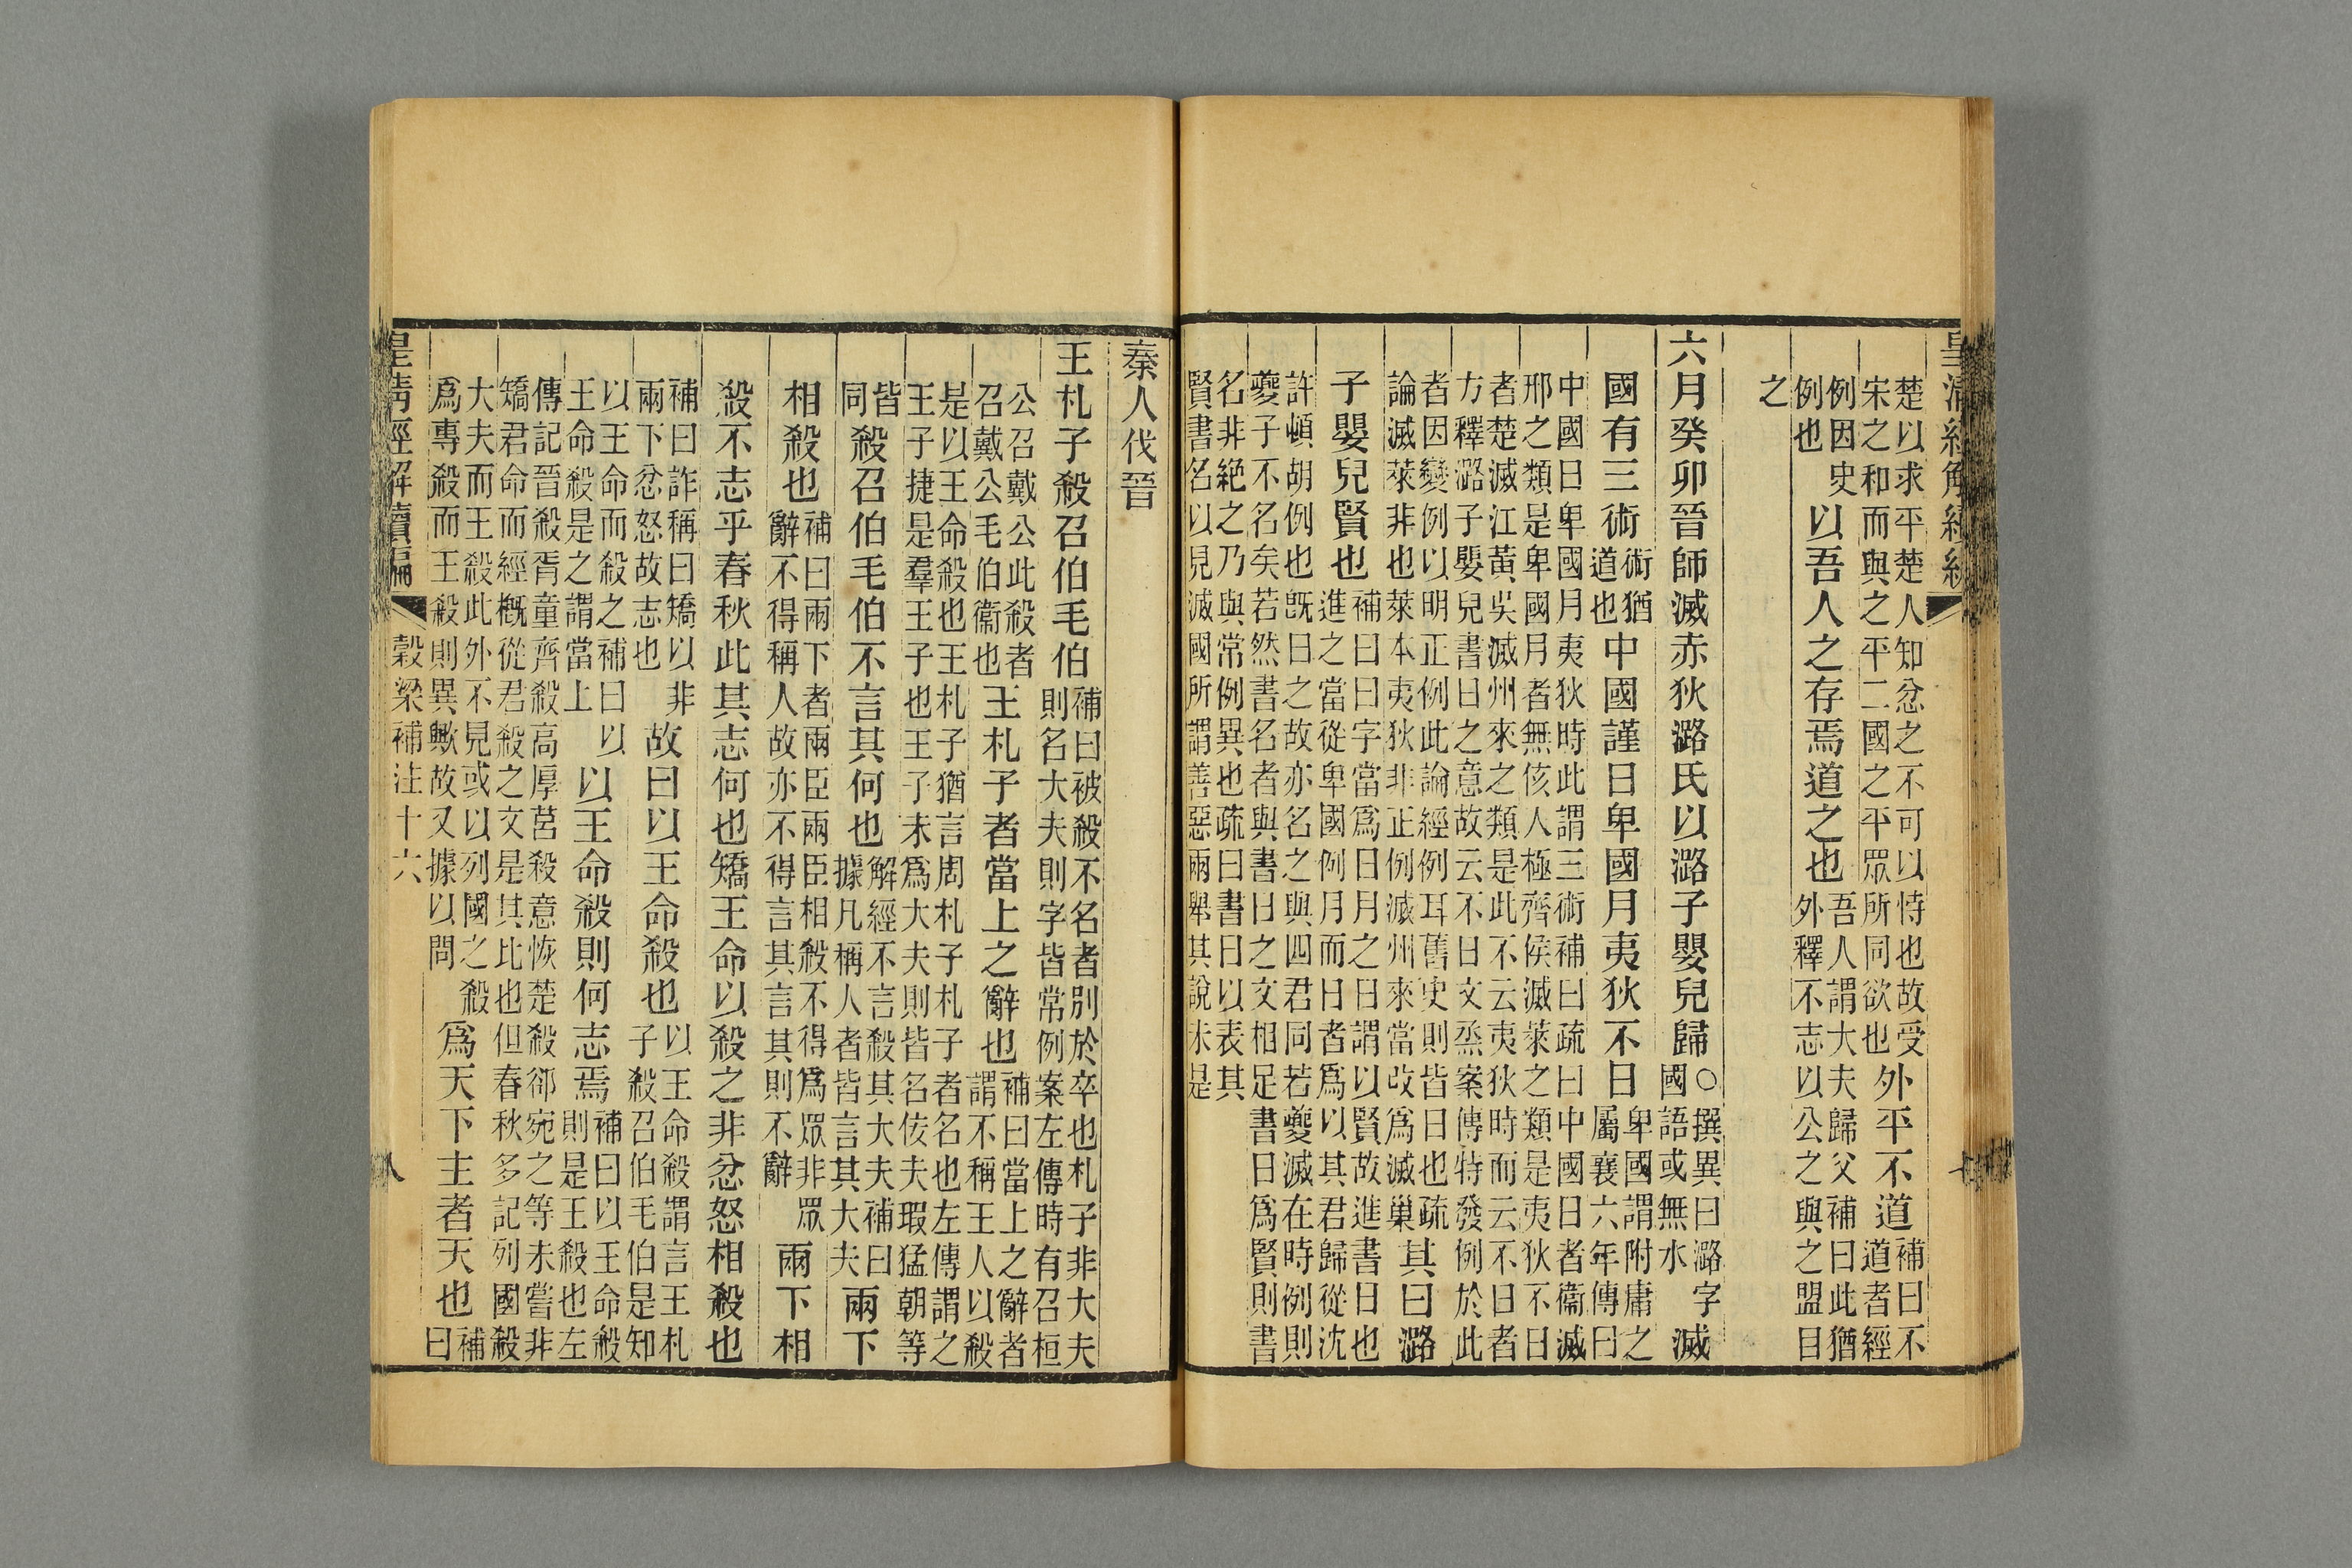 皇清經解續編
楚以求平楚人知忿之不可以恃也故受宋之和而與之平二國之平眾所同欲也外平不道補曰不道者經
例因史例也以吾人之存焉道之也吾人謂大夫歸父補曰此猶外釋不志以公之與之盟目
之
六月癸卯晉師滅赤狄潞氏以潞子嬰兒歸○撰異曰潞字國語或無水滅
國有三術術猶道也中國謹日卑國月夷狄不日卑國謂附庸之屬襄六年傳曰
中國日卑國月夷狄時此謂三術補曰疏曰中國日者衞滅邢之類是卑國月者無侅人極齊侯滅萊之類是夷狄不日
者楚滅江黃吳滅州來之類是此不云夷狄時而云不日者方釋潞子嬰兒書日之意故云不日文烝案傳特發例於此
者因變例以明正例此論經例耳舊史則皆日也疏論滅萊非也萊本夷狄非正例滅州來當改爲滅巢其曰潞
子嬰兒賢也補曰曰字當爲日月之日謂以賢故進書日也進之當從卑國例月而日者爲以其君歸從沈
許頓胡例也旣日之故亦名之與四君同若夔滅在時例則夔子不名矣若然書名者與書日之文相足書日爲賢則書
名非絕之乃與常例異也疏曰書日以表其賢書名以見滅國所謂善惡兩舉其說未是
秦人伐晉
王札子殺召伯毛伯補曰被殺不名者別於卒也札子非大夫則名大夫則字皆常例案左傳時有召桓
公召戴公此殺者召戴公毛伯衞也王札子者當上之辭也補曰當上之辭者謂不稱王人以殺
是以王命殺也王札子猶言周札子札子者名也左傳謂之王子捷是羣王子也王子未爲大夫則皆名佞夫瑕猛朝等
皆同殺召伯毛伯不言其何也解經不言殺其大夫補曰據凡稱人者皆言其大夫兩下
相殺也補曰兩下者兩臣兩臣相殺不得爲眾非眾辭不得稱人故亦不得言其言其則不辭兩下相
殺不志乎春秋此其志何也矯王命以殺之非忿怒相殺也
補曰詐稱曰矯以非兩下忿怒故志也故曰以王命殺也以王命殺謂言王札子殺召伯毛伯是知
以王命而殺之補曰以王命殺是之謂當上以王命殺則何志焉補曰以王命殺則是王殺也左
傳記晉殺胥童齊殺高厚莒殺意恢楚殺郤宛之等未嘗非矯君命而經概從君殺之文是其比也但春秋多記列國殺
大夫而王殺此外不見或以列國之殺爲專殺而王殺則異歟故又據以問爲天下主者天也補曰
皇清經解續編 穀梁補注十六 八